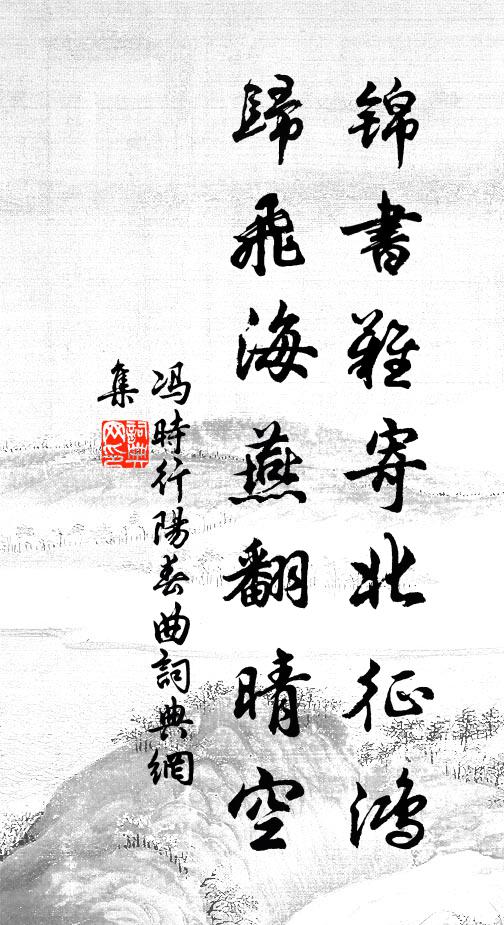 錦書難寄北征鴻
歸飛海燕翻晴空
冯時行陽春曲詞典網
集